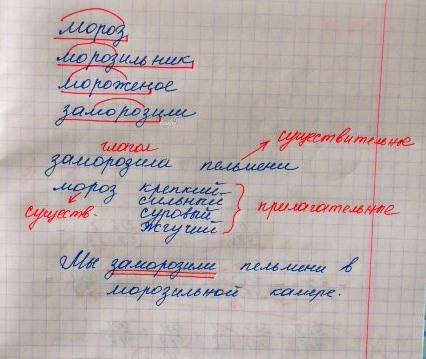 мороз
морозильник
мороженое
заморозили
глагол
существительное
заморозила пельмени
мороз крепкий
сильный
существ. суровый прилагательные
жгучий
Мы заморозили пельмени в
морозильной камере.